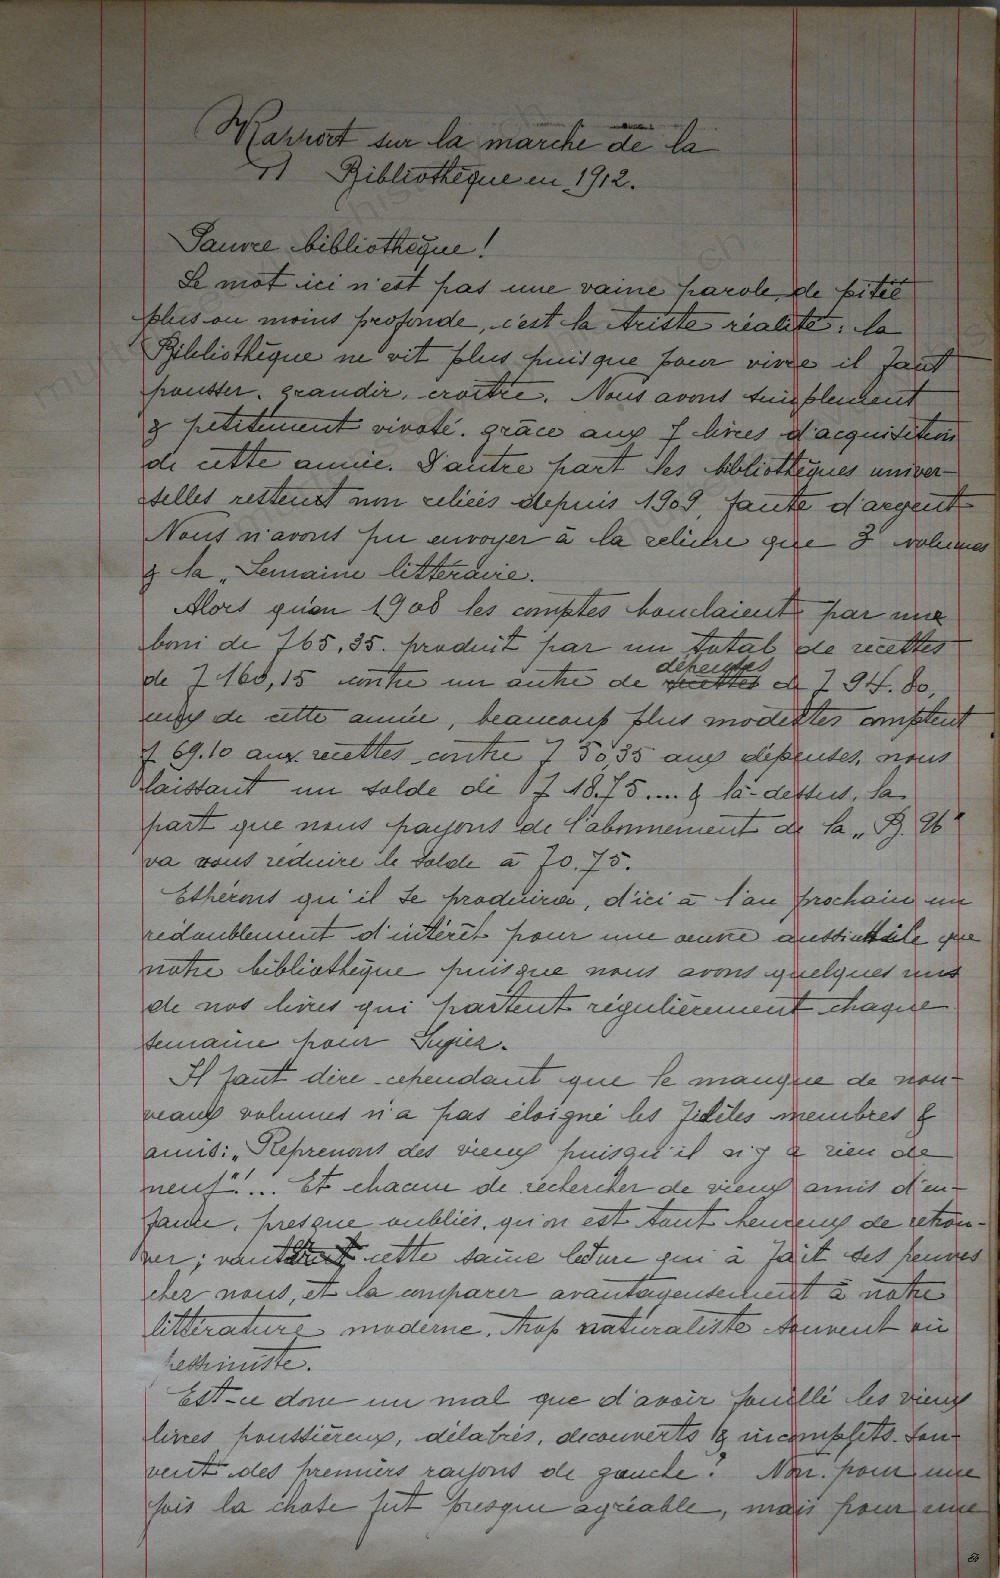 Rapport sur la marche de la
Bibliothèque en 1912.
Pauvre bibliothèque!
Le mot ici n'est pas une vaine parole de pitié
plus ou moins profonde, c'est la triste réalité: la
Bibliothèque ne vit plus puisque pour vivre il faut
pousser, grandir, croître. Nous avons simplement
& petitement vivoté, grâce aux 7 livres d'acquisition
de cette année. D'autre part les bibliothèques univer-
selles restent non reliées depuis 1909, faute d'argent
Nous n'avons pu envoyer à la reliure que 3 volumes
& la „Semaine littéraire.
Alors qu'en 1908 les comptes bouclaient par une
boni de f 65,35. produit par un total de recettes
de f 160,15 contre un autre de recettes dépenses de f 94.80,
ceux de cette année, beaucoup plus modestes comptent
f 69.10 aux recettes contre f 50,35 aux dépenses, nous
laissant un solde de f 18.75.... & là-dessus, la
part que nous payons de l'abonnement de la „B.
va vous réduire le solde à f 0.75.
Espérons qu'il se produira, d'ici à l'an prochain un
redoublement d'intérêt pour une œuvre aussi utile que
notre bibliothèque puisque nous avons quelques uns
de nos livres qui partent régulièrement chaque
semaine pour Sugiez.
Il faut dire cependant que le manque de nou-
veaux volumes n'a pas éloigné les fidèles membres &
amis: „Reprenons des vieux puisqu'il n'y a rien de
neuf"!... Et chacun de rechercher de vieux amis d'en-
fance, presque oubliés, qu'on est tout heureux de retrou-
ver; vanter cette saine lecture qui à fait ses peuves
chez nous, et la comparer avantageusement à notre
littérature moderne, trop naturaliste souvent ou
pessimiste.
Est-ce donc un mal que d'avoir fouillé les vieux
livres poussiéreux, délabrés, decouverts & incomplets sou-
vent des premiers rayons de gauche? Non, pour une
fois la chose fut presque agréable, mais pour une